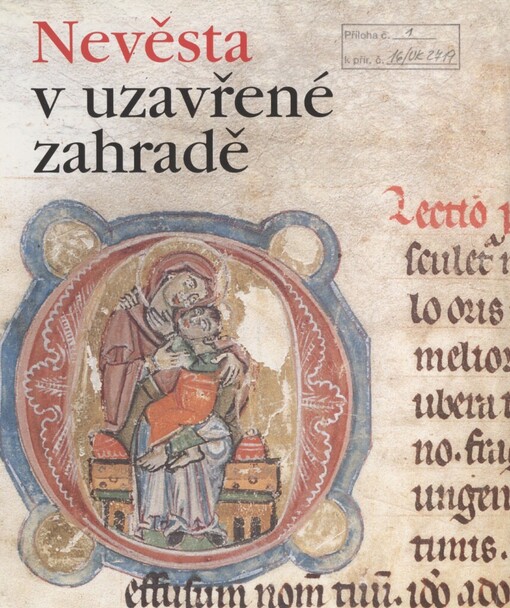 Nevěsta
v uzavřené
zahradě
Příloha č. 1
k přír. č. 16/UK 2419
Lectio p
sculet̃
lo oris
melior
ubera
no. frag
ungen
timis.
effusum nom̄ tuū. ido ado